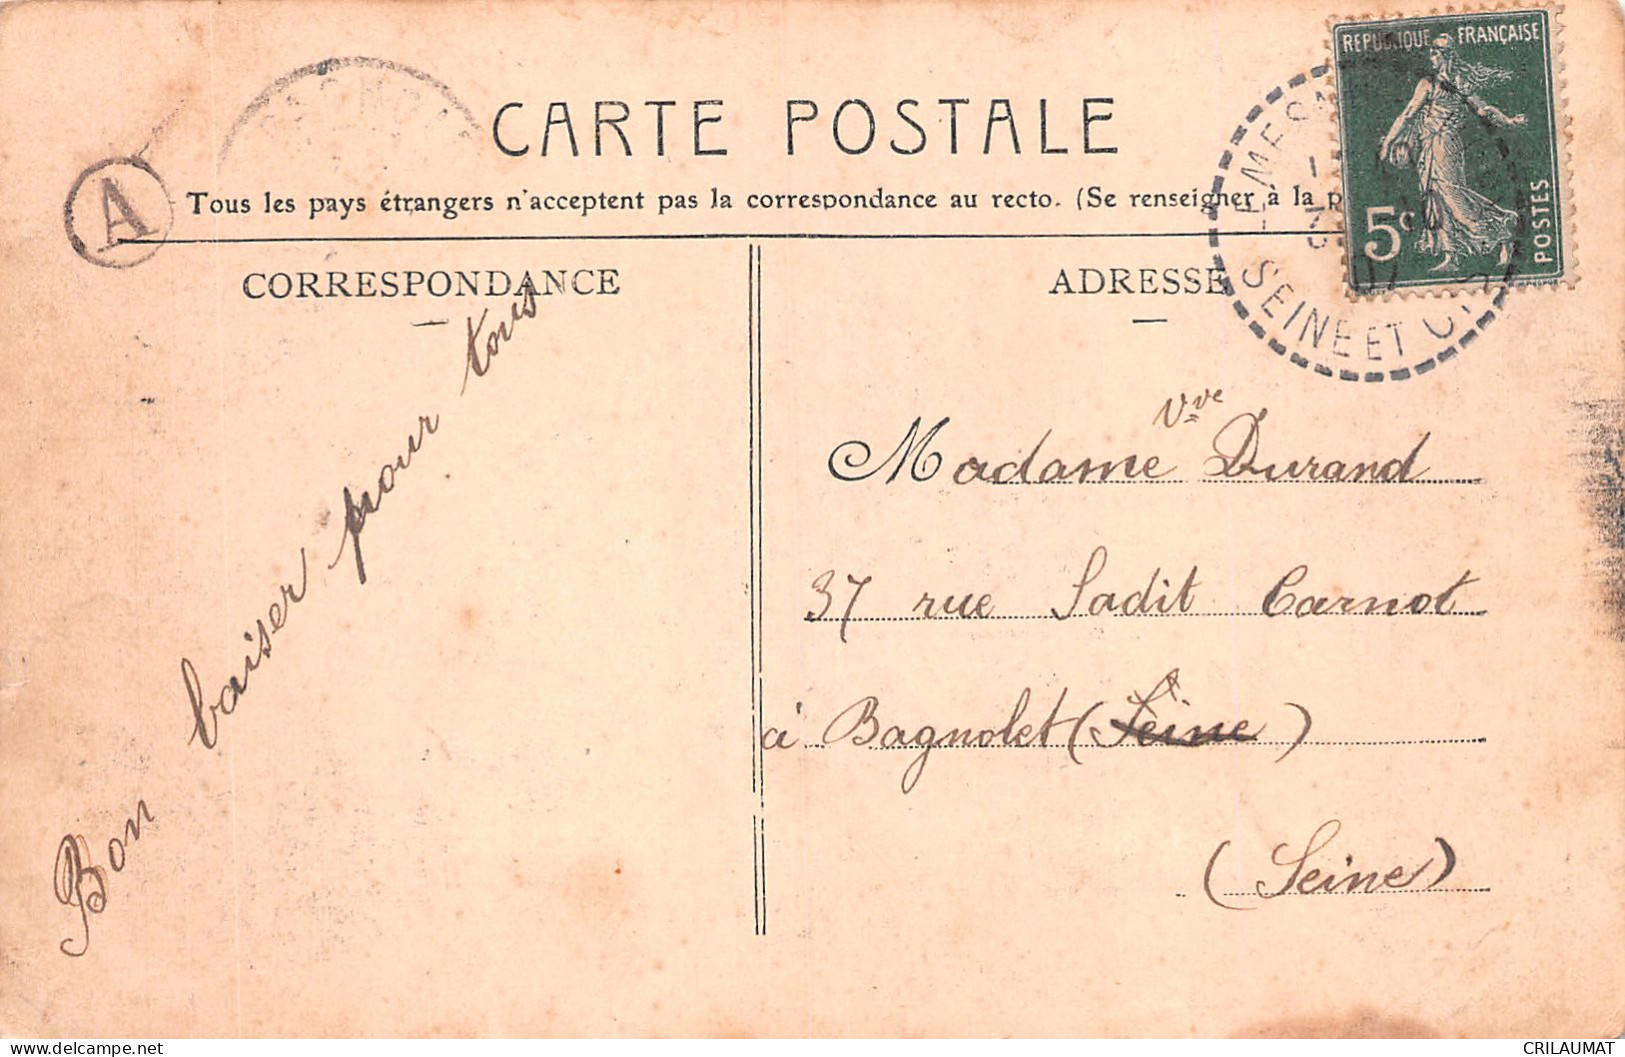 RÉPUBLIQUE FRANÇAISE
5c
POSTES
SEINE ET
07
CARTE POSTALE
A
Tous les pays étrangers n'acceptent pas la correspondance au recto. (Se renseigner à la
CORRESPONDANCE
ADRESSE
Bon baiser pour tous
Vve
Madame Durand
37 rue Sadit Carnot
à Bagnolet (Seine)
(Seine)
CRILAUMAT